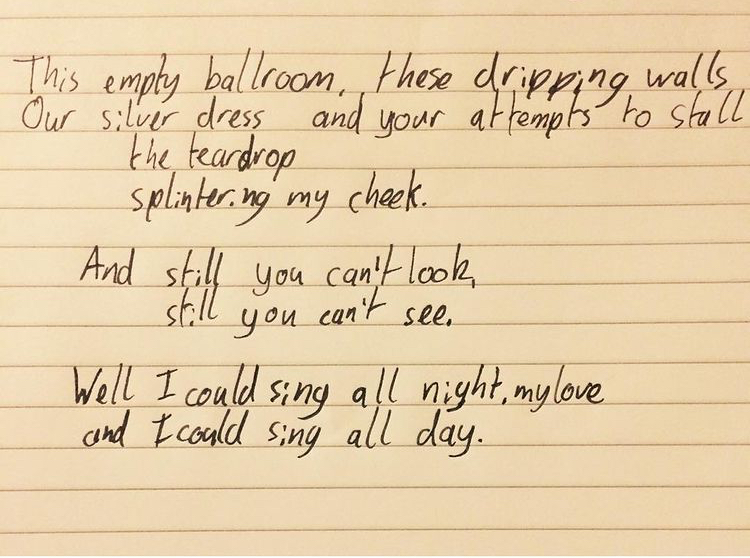 This empty ballroom, these dripping walls
Our silver dress and your attempts to stall
the teardrop
splintering my cheek.
And still you can't look,
still you can't see.
Well I could sing all night, my love
and I could sing all day.